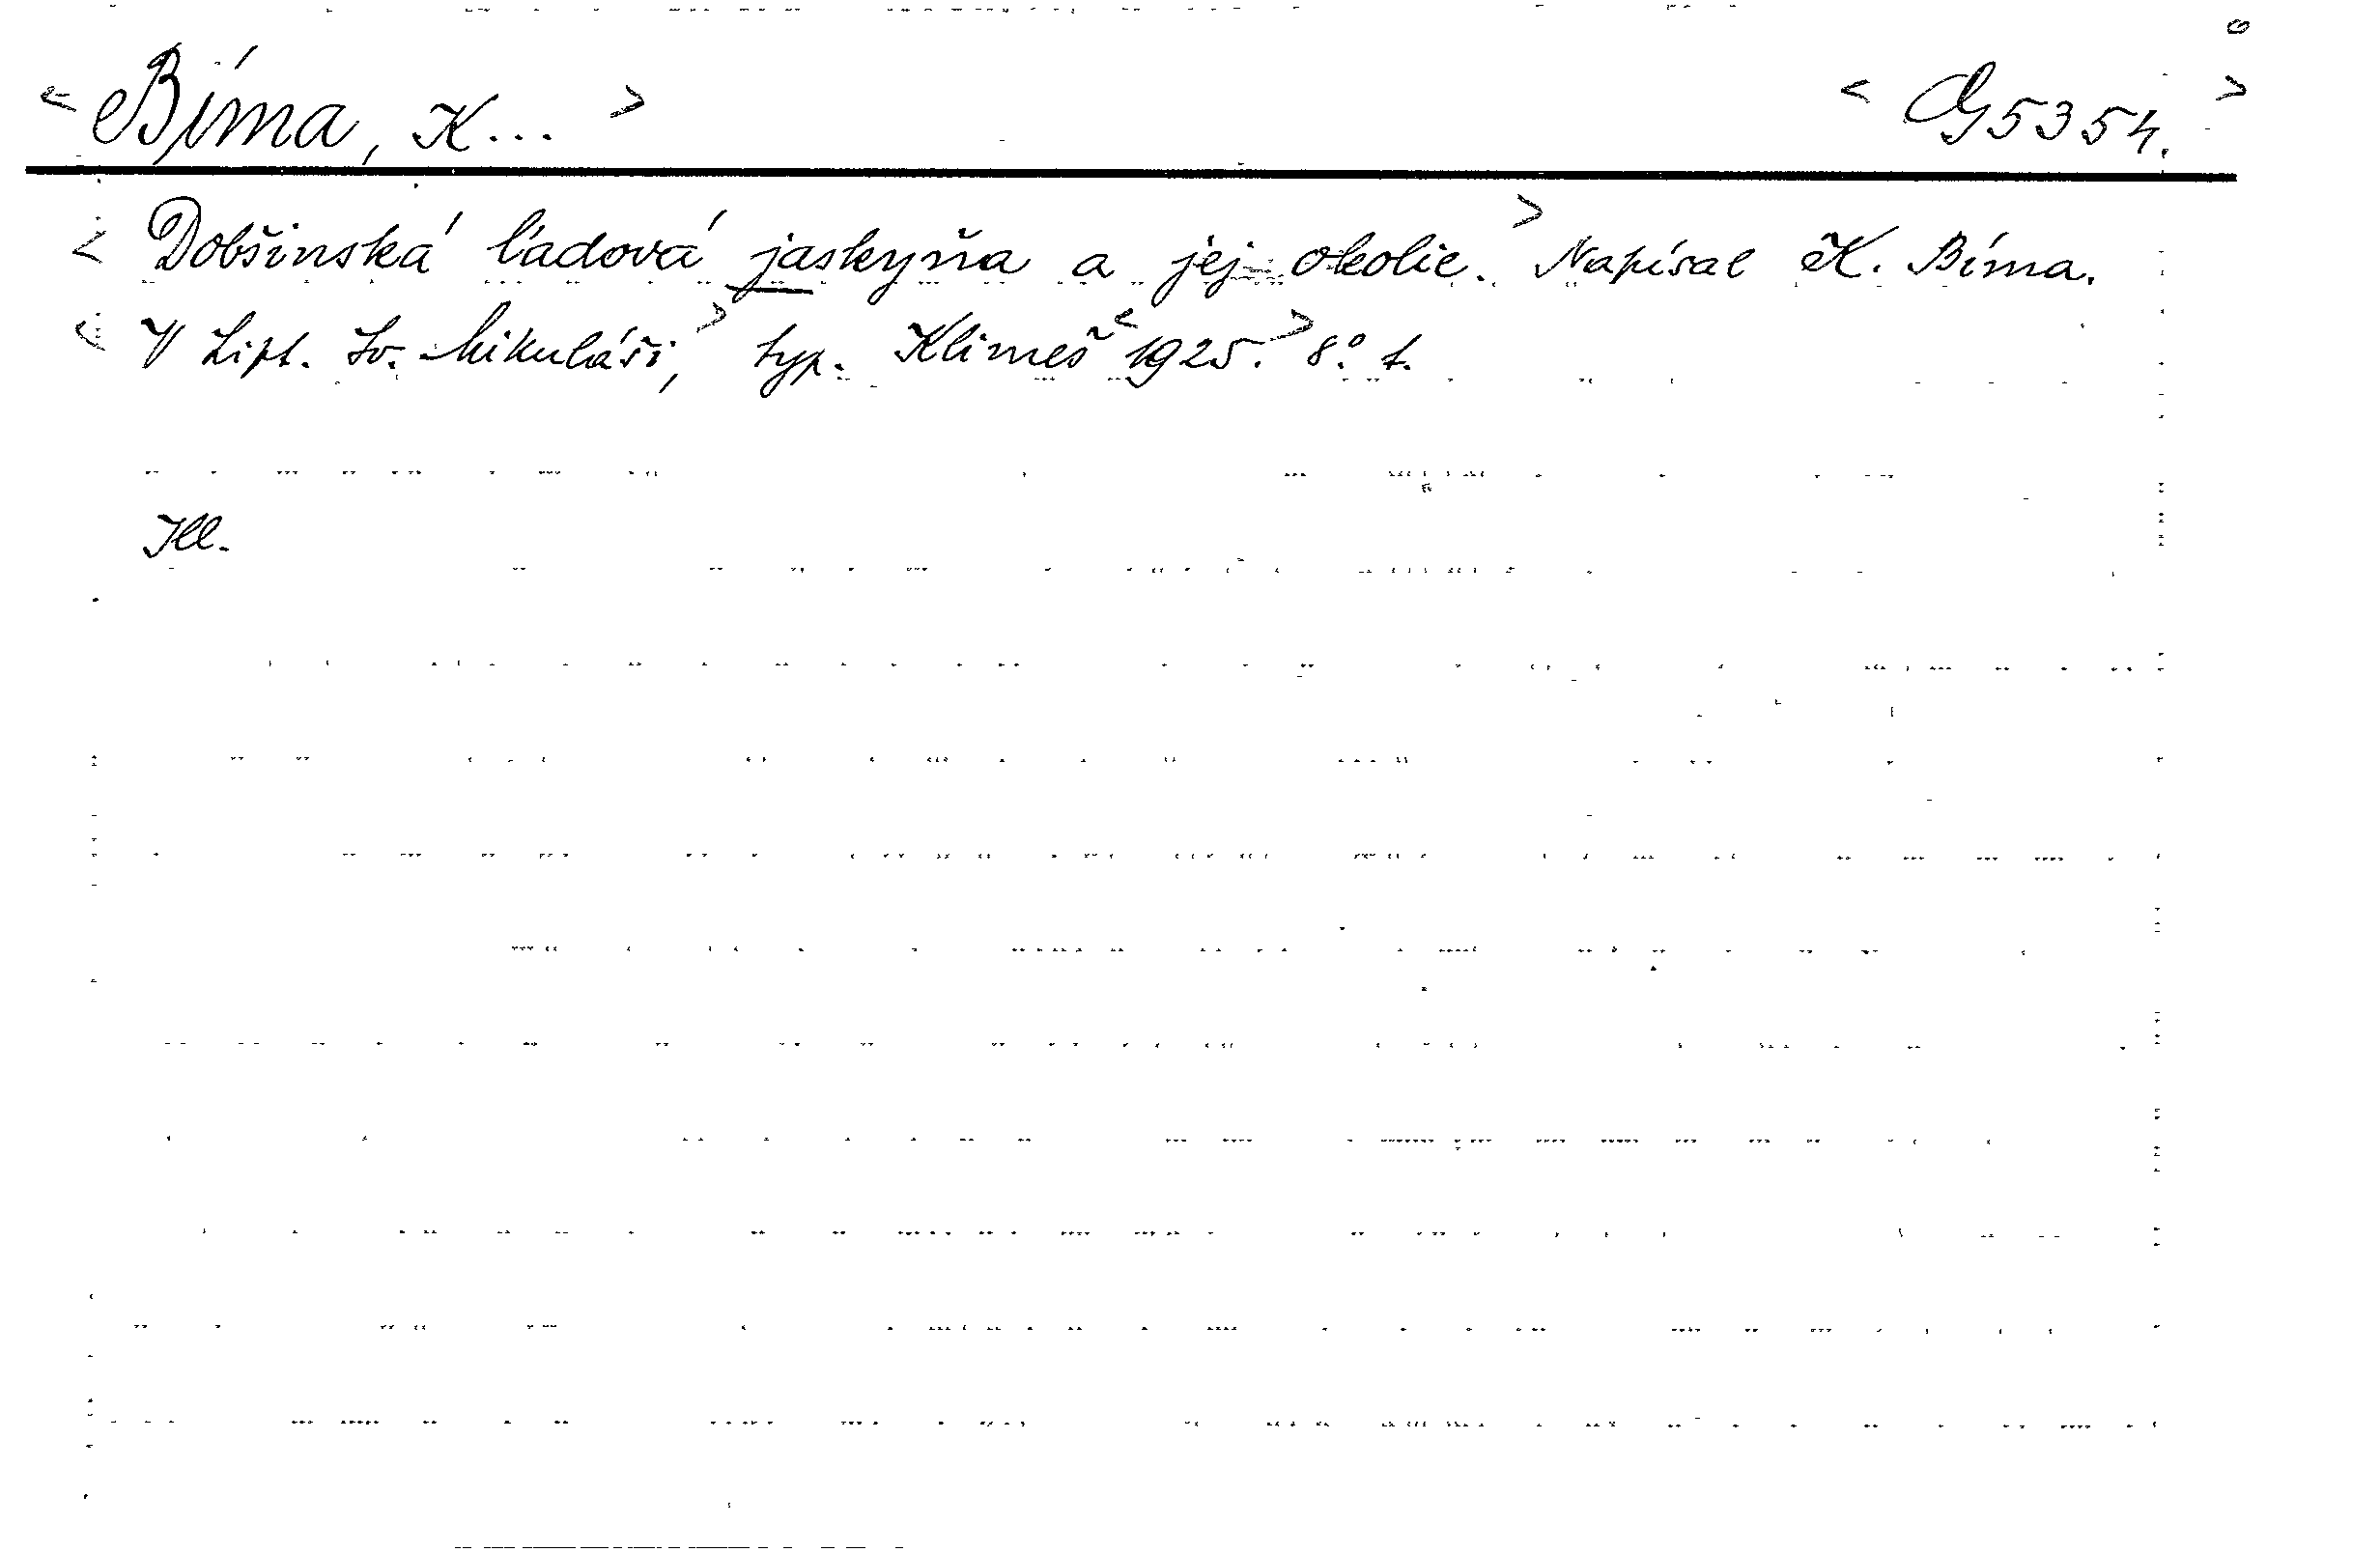 <Bíma, K...> <G 5354.>
<Dobšinská ľadová jaskyňa a jej okolie.> Napísal K. Bíma.
<V Lipt. Sv. Mikuláši,> typ. Klimeš <1925.> 8° t.
Ill.